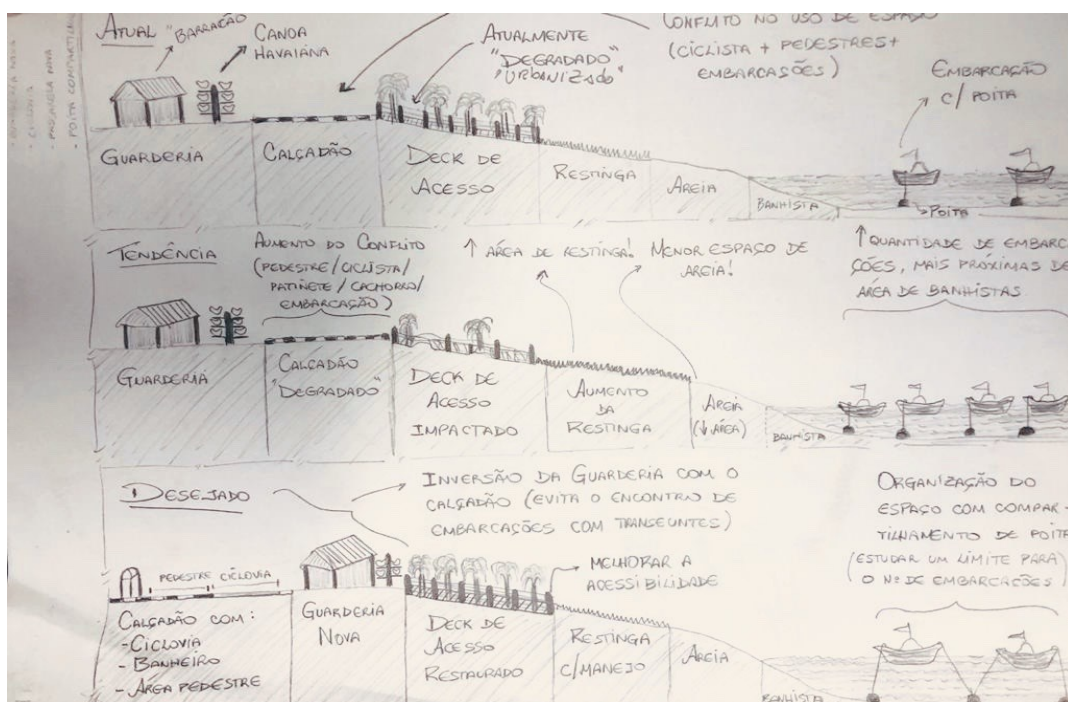 ATUAL
"BARRACÃO"
CANOA
HAVAIANA
ATUALMENTE
"DEGRADADO"
"URBANIZADO"
CONFLITO NO USO DE ESPAÇO
(CICLISTA + PEDESTRES +
EMBARCASÕES)
EMBARCAÇÃO
C/ POITA
GUARDERIA
CALÇADÃO
DECK DE
ACESSO
RESTINGA
AREIA
BANHISTA
POITA
TENDÊNCIA
AUMENTO DO CONFLITO
(PEDESTRE/CICLISTA/
PATINETE/CACHORRO/
EMBARCAÇÃO)
↑ ÁREA DE RESTINGA!
MENOR ESPAÇO DE
AREIA!
↑ QUANTIDADE DE EMBARCA
ÇÕES, MAIS PRÓXIMAS DE
ÁREA DE BANHISTAS
GUARDERIA
CALÇADÃO
"DEGRADADO"
DECK DE
ACESSO
IMPACTADO
AUMENTO
DA
RESTINGA
AREIA
(↓ ÁREA)
BANHISTA
DESEJADO
INVERSÃO DA GUARDERIA COM O
CALÇADÃO (EVITA O ENCONTRO DE
EMBARCAÇÕES COM TRANSEUNTES)
MELHORAR A
ACESSIBILIDADE
ORGANIZAÇÃO DO
ESPAÇO COM COMPAR-
TILHAMENTO DE POITA
(ESTUDAR UM LIMITE PARA)
O Nº DE EMBARCAÇÕES
PEDESTRE CICLOVIA
CALÇADÃO COM:
- CICLOVIA
- BANHEIRO
- ÁREA PEDESTRE
GUARDERIA
NOVA
DECK DE
ACESSO
RESTAURADO
RESTINGA
C/MANEJO
AREIA
BANHISTA
- CICLOVIA
- PASSARELA NOVA
- POITA COMPARTILH